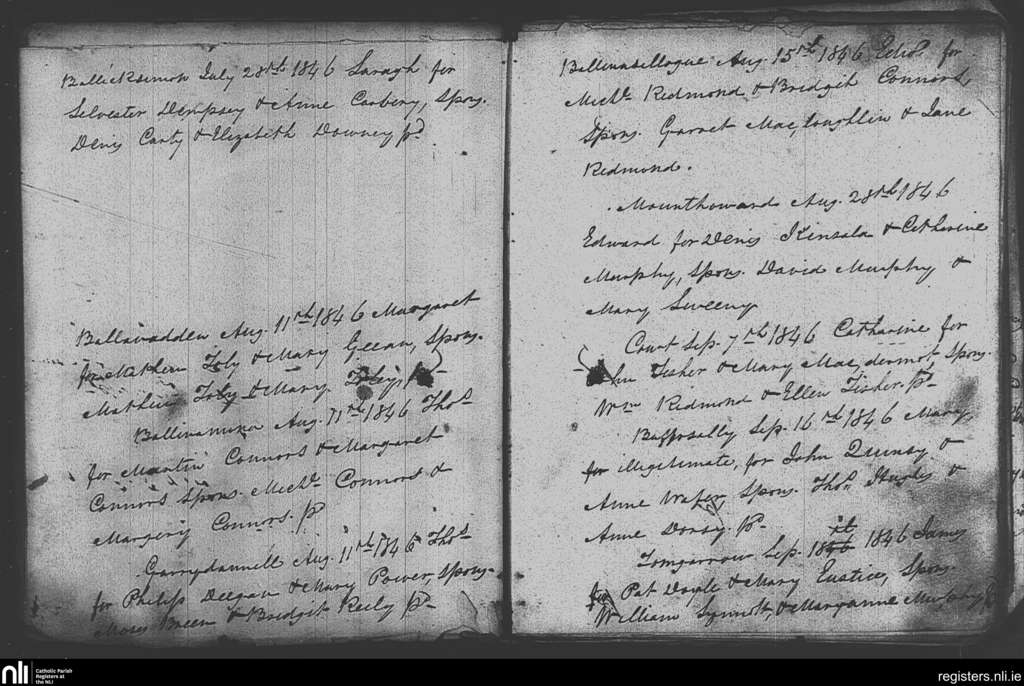 Ballicksimon July 28th 1846 Saragh for
Selvester Dempsey & Anne Carbery, Spons.
Denis Carty & Elizabeth Downey pd.
Ballivadden Aug. 11th 1846 Margaret
for Mathew Foly & Mary Geean, Spons.
Mathew Foly & Mary Foley, pd
Ballivanuxa Aug. 11th 1846 Thos.
for Martin Connors & Margaret
Connors Spons. Michl. Connors &
Margery Connors. pd
Garrydannell Aug. 11th 1846 Thos.
for Philip Deegan & Mary Power, Spons.
Moses Breen & Bridgit Reily pd
Ballinasillogue Aug. 15th 1846 for
Michl. Redmond & Bridgit Connors,
Spons. Garret Macloughlin & Jane
Redmond.
Mounthoward Aug. 28th 1846
Edward for Denis Kinsala & Catharine
Murphy, Spons. David Murphy &
Mary Sweeny
Court Sep. 7th 1846 Catharine for
John Fisher & Mary Macdermot Spons.
Wm Redmond & Ellen Fisher. pd
Sep. 16th 1846 Mary
for illegitimate, for John Quinsy &
Anne Wafer Spons. Thos. Hughs &
Anne Dorsy. pd
Tomgarrow Sep. 18th 1846 James
for Pat Doyle & Mary Eustice, Spons.
William Synnott, & Maryanne Murphy pd
nli
Catholic Parish
Registers at
the NLI
registers.nli.ie